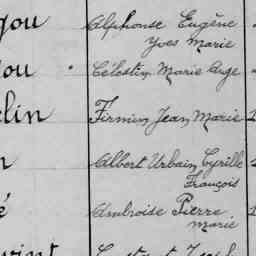 gou Alphonse Eugène
Yves Marie
ou Célestin Marie Ange
lin Firmin Jean Marie
n Albert Urbain Cyrille
François
é Ambroise Pierre
Marie